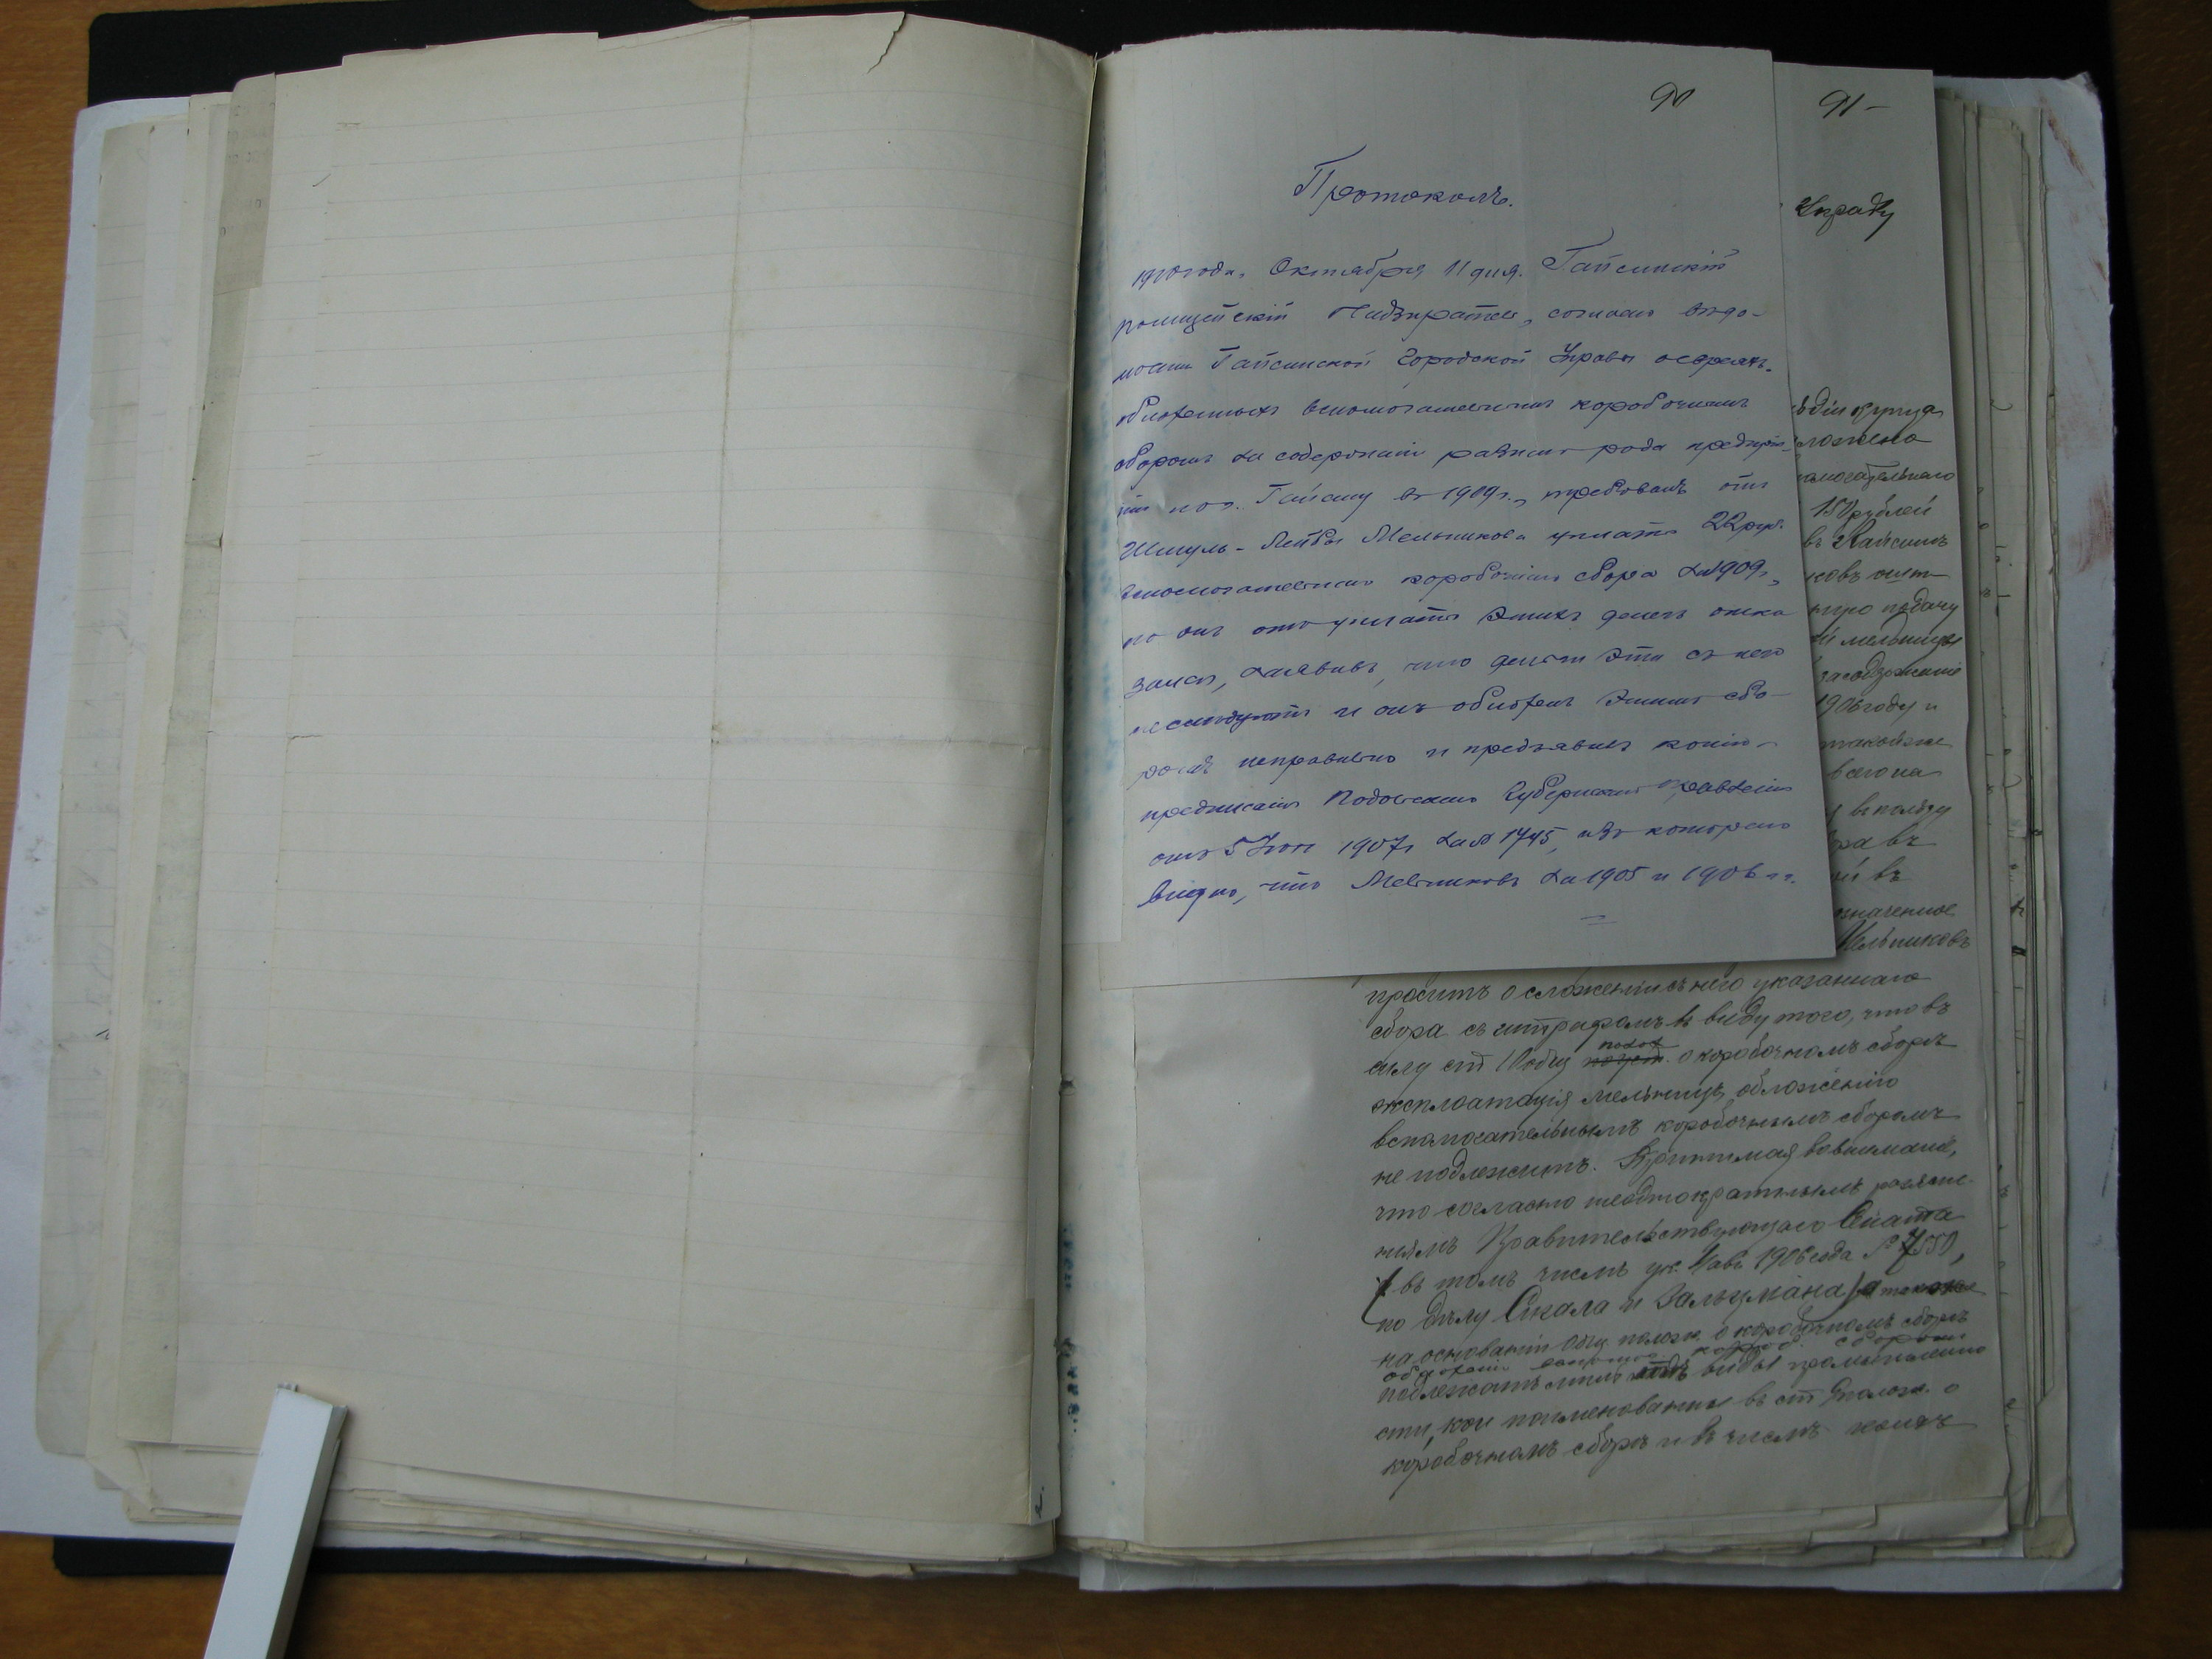 90
Протоколъ.
1910 года, Октября 11 дня. Гайсинскій
полицейскій Надзиратель, согласно вѣдо-
мости Гайсинской Городской Управы о евреяхъ,
обложенныхъ вспомогательнымъ коробочнымъ
сборомъ за содержаніе разнаго рода предпрія-
тій по г. Гайсину въ 1909 г., требовалъ отъ
Шмуль-Лейбы Мельникова уплаты 22 руб.
вспомогательнаго коробочнаго сбора за 1909 г.,
но онъ отъ уплаты этихъ денегъ отка
зался, заявивъ, что деньги эти съ него
не слѣдуютъ и онъ обложенъ этимъ сбо-
ромъ неправильно и предъявилъ копію
предписанія Подольскаго Губернскаго правленія
отъ 5 1907 г. за № 1745, изъ котораго
видно, что Мельниковъ за 1905 и 1906 г.г.
91
купца
ложено
вспомогательнаго
150 рублей
въ Гайсинъ
ковъ
подачу
мельницы
за содержаніе
1906 году и
такой же
всего на
въ пользу
ра въ
й въ
означенное
Мельниковъ
проситъ о сложеніи съ него указаннаго
сбора съ штрафомъ въ виду того, что въ
силу ст 10 общ полож о коробочномъ сборѣ
эксплоатація мельницъ обложенію
вспомогательнымъ коробочнымъ сборомъ
не подлежитъ. Принимая во вниманіе,
что согласно неоднократнымъ разъясне-
ніямъ Правительствующаго Сената
(въ томъ числѣ ук. 1 авг 1906 года №7550,
по дѣлу Скала и Зальцмана) а также
на основаніи Общ. полож. о коробочномъ сборѣ
обложенію вспомог. короб. сборомъ
подлежатъ лишь виды промышленно
сти, кои поименованы въ ст полож. о
коробочномъ сборѣ и въ числѣ коихъ